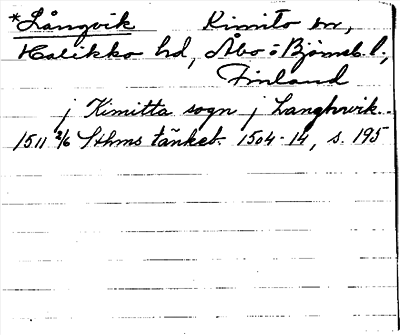 *Långvik Kimito sn,
Halikko hd, Åbo o Björneb. l.,
Finland
j Kimitta sogn j Langhvik.
1511 2/6 Sthms tänkeb. 1504-14, s. 195